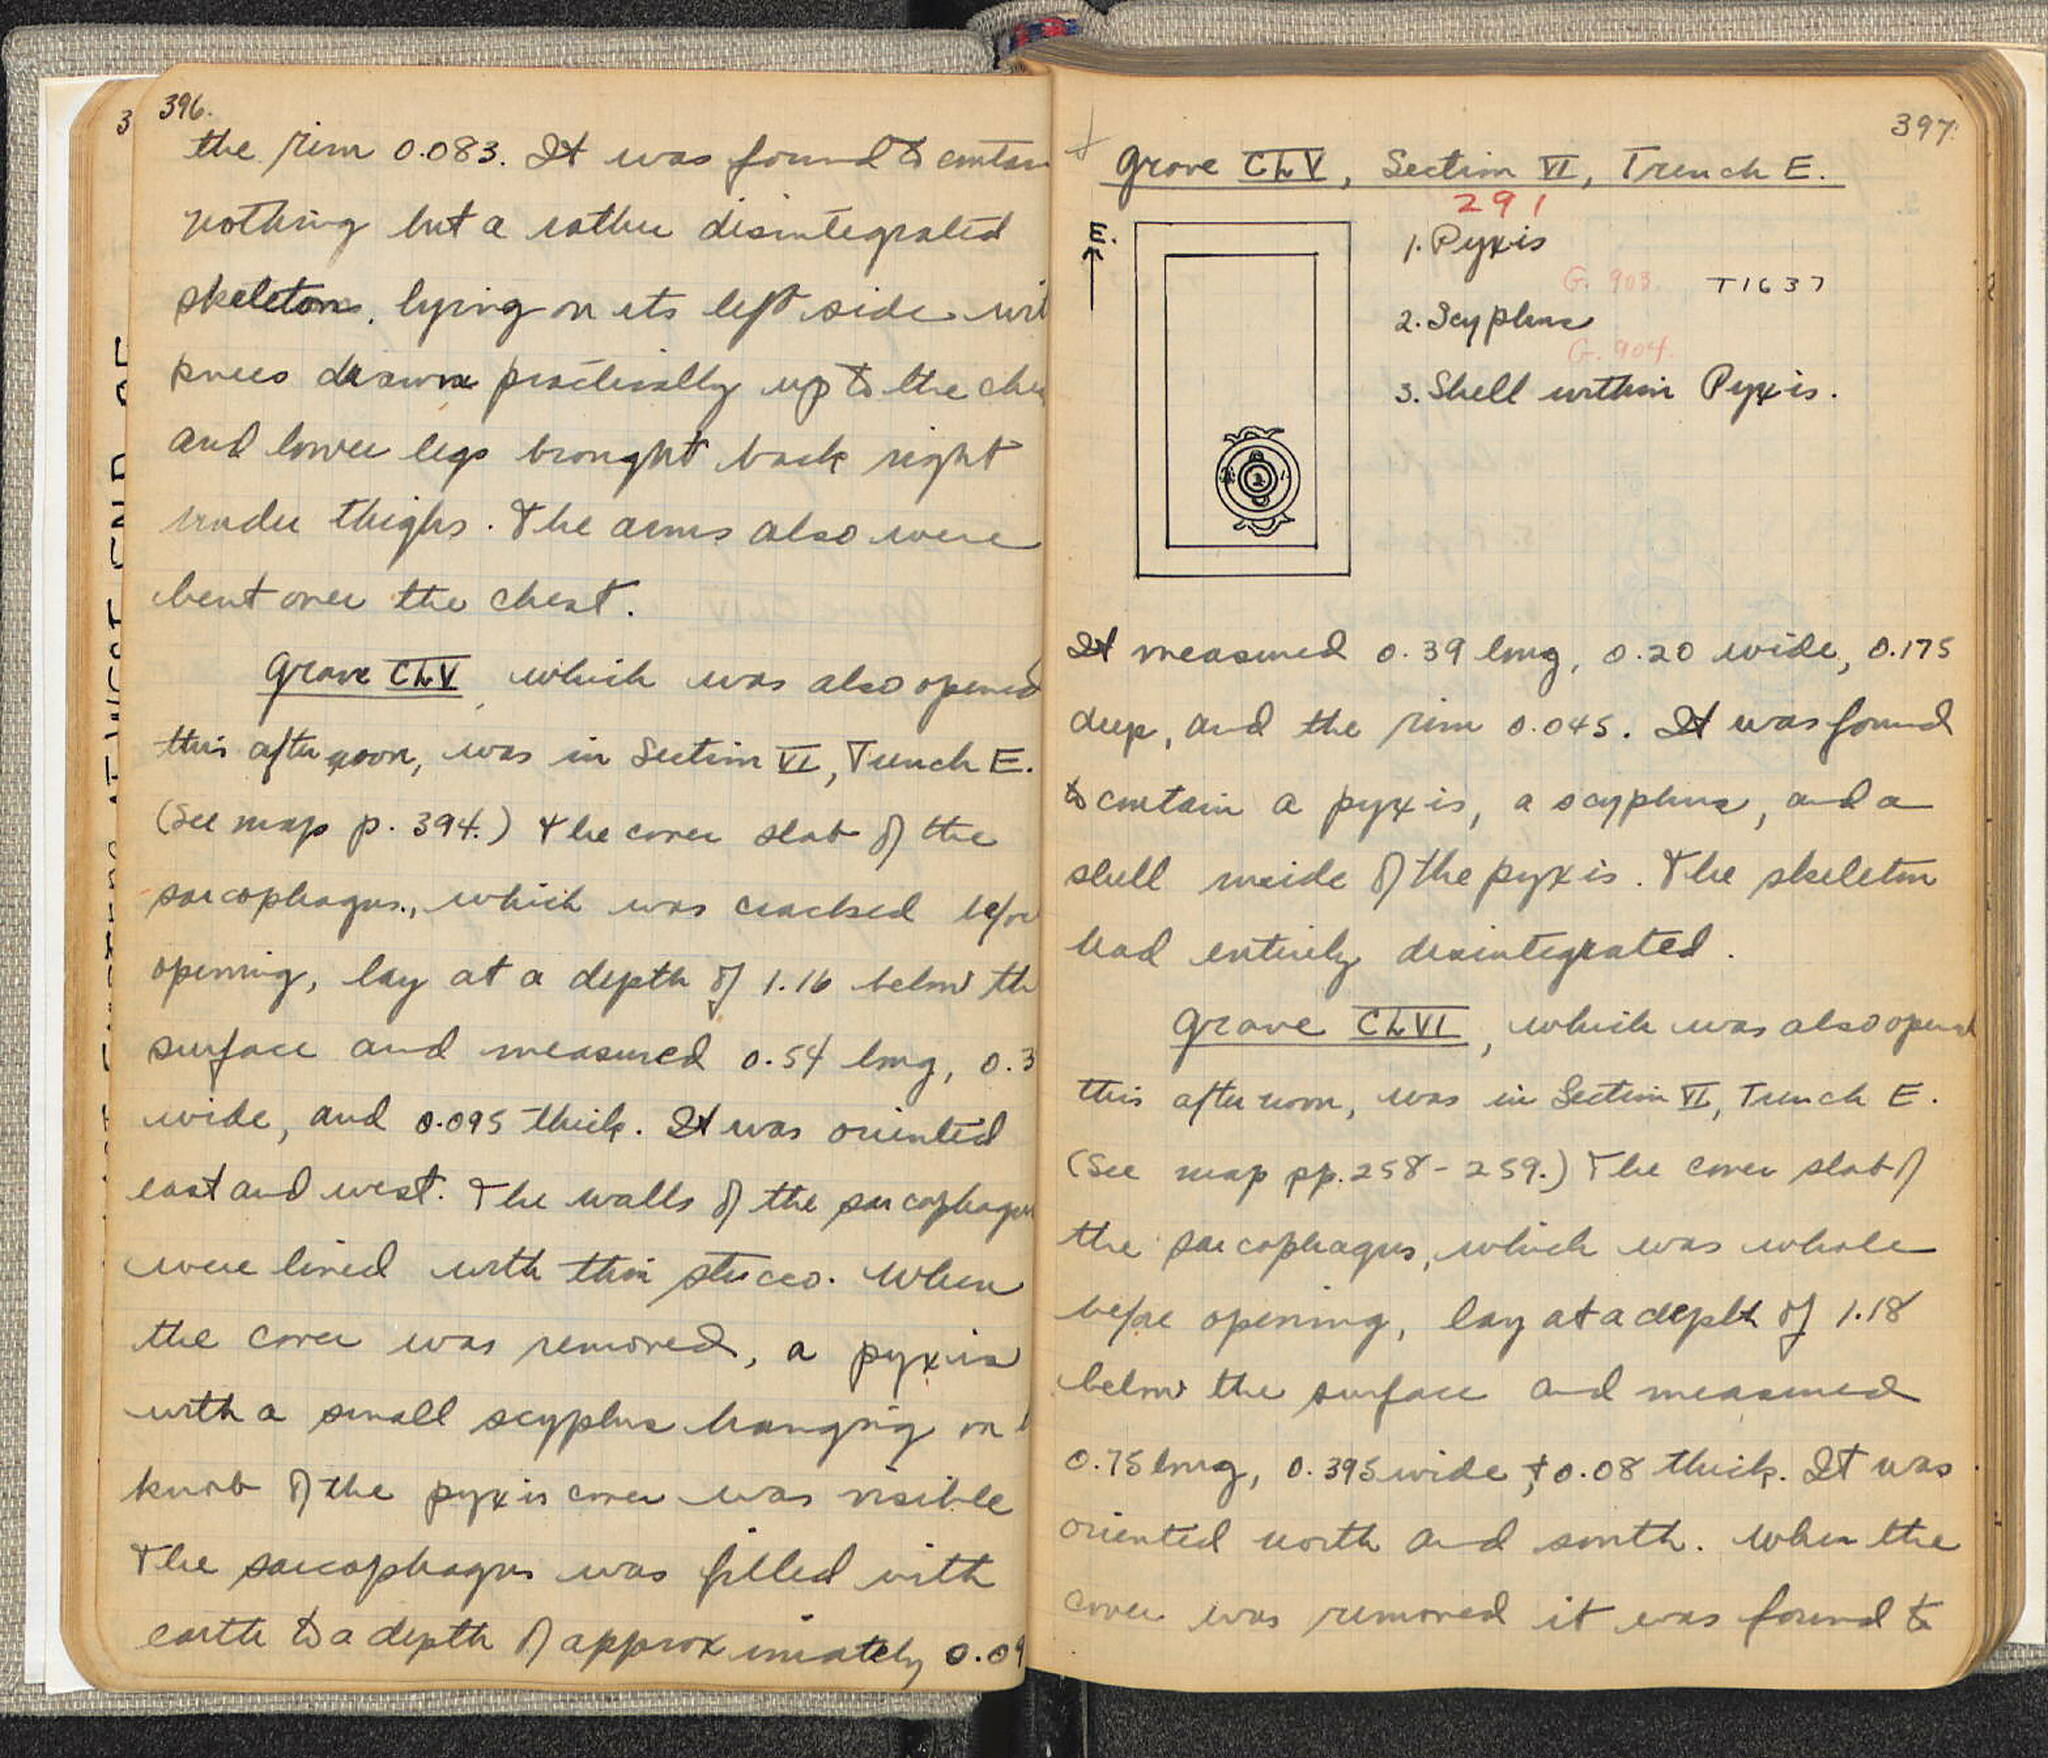 396.
the rim 0.083. It was found to contain
nothing but a rather disintegrated
skeleton, lying on its left side wit
knees drawn practically up to the che
and lower legs brought back right
under thighs. The arms also were
bent over the chest.
Grave CLV, which was also opened
this afternoon, was in Section VI, Trench E.
(See map p. 394.) The cover slab of the
sarcophagus, which was cracked before
opening, lay at a depth of 1.16 below th
surface and measured 0.54 long, 0.3
wide, and 0.095 thick. It was oriented
east and west. The walls of the sarcophagus
were lined with thin stucco. When
the cover was removed, a pyxis
with a small scyphus hanging on
knob of the pyxis cover was visible
The sarcophagus was filled with
earth to a depth of approximately 0.09
397.
Grave CLV, Section VI, Trench E.
291
E.
1. Pyxis
G. 903. T1637
2. Scyphus
G. 904.
3. Shell within Pyxis.
It measured 0.39 long, 0.20 wide, 0.175
deep, and the rim 0.045. It was found
to contain a pyxis, a scyphus, and a
shell inside of the pyxis. The skeleton
had entirely disintegrated.
Grave CLVI, which was also opened
this afternoon, was in Section VI, Trench E.
(See map pp. 258-259.) The cover slab of
the sarcophagus, which was whole
before opening, lay at a depth of 1.18
below the surface and measured
0.75 long, 0.395 wide, + 0.08 thick. It was
oriented north and south. When the
cover was removed it was found to